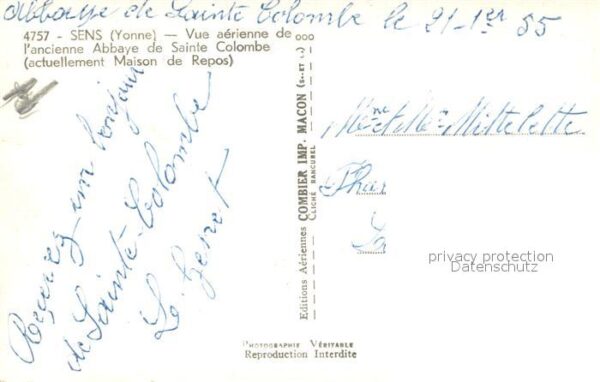 Abbaye de Sainte Colombe le 21-1er 55
4757 - SENS (Yonne) — Vue aérienne de
l'ancienne Abbaye de Sainte Colombe
(actuellement Maison de Repos)
Recevez un bonjour
de Sainte-Colombe
L. Genet
Editions Aériennes COMBIER IMP. MACON (S.-ET-L.)
CLICHÉ RANCUREL
Mme et Mr Mittelette
Phar
privacy protection
Datenschutz
PHOTOGRAPHIE VÉRITABLE
Reproduction Interdite